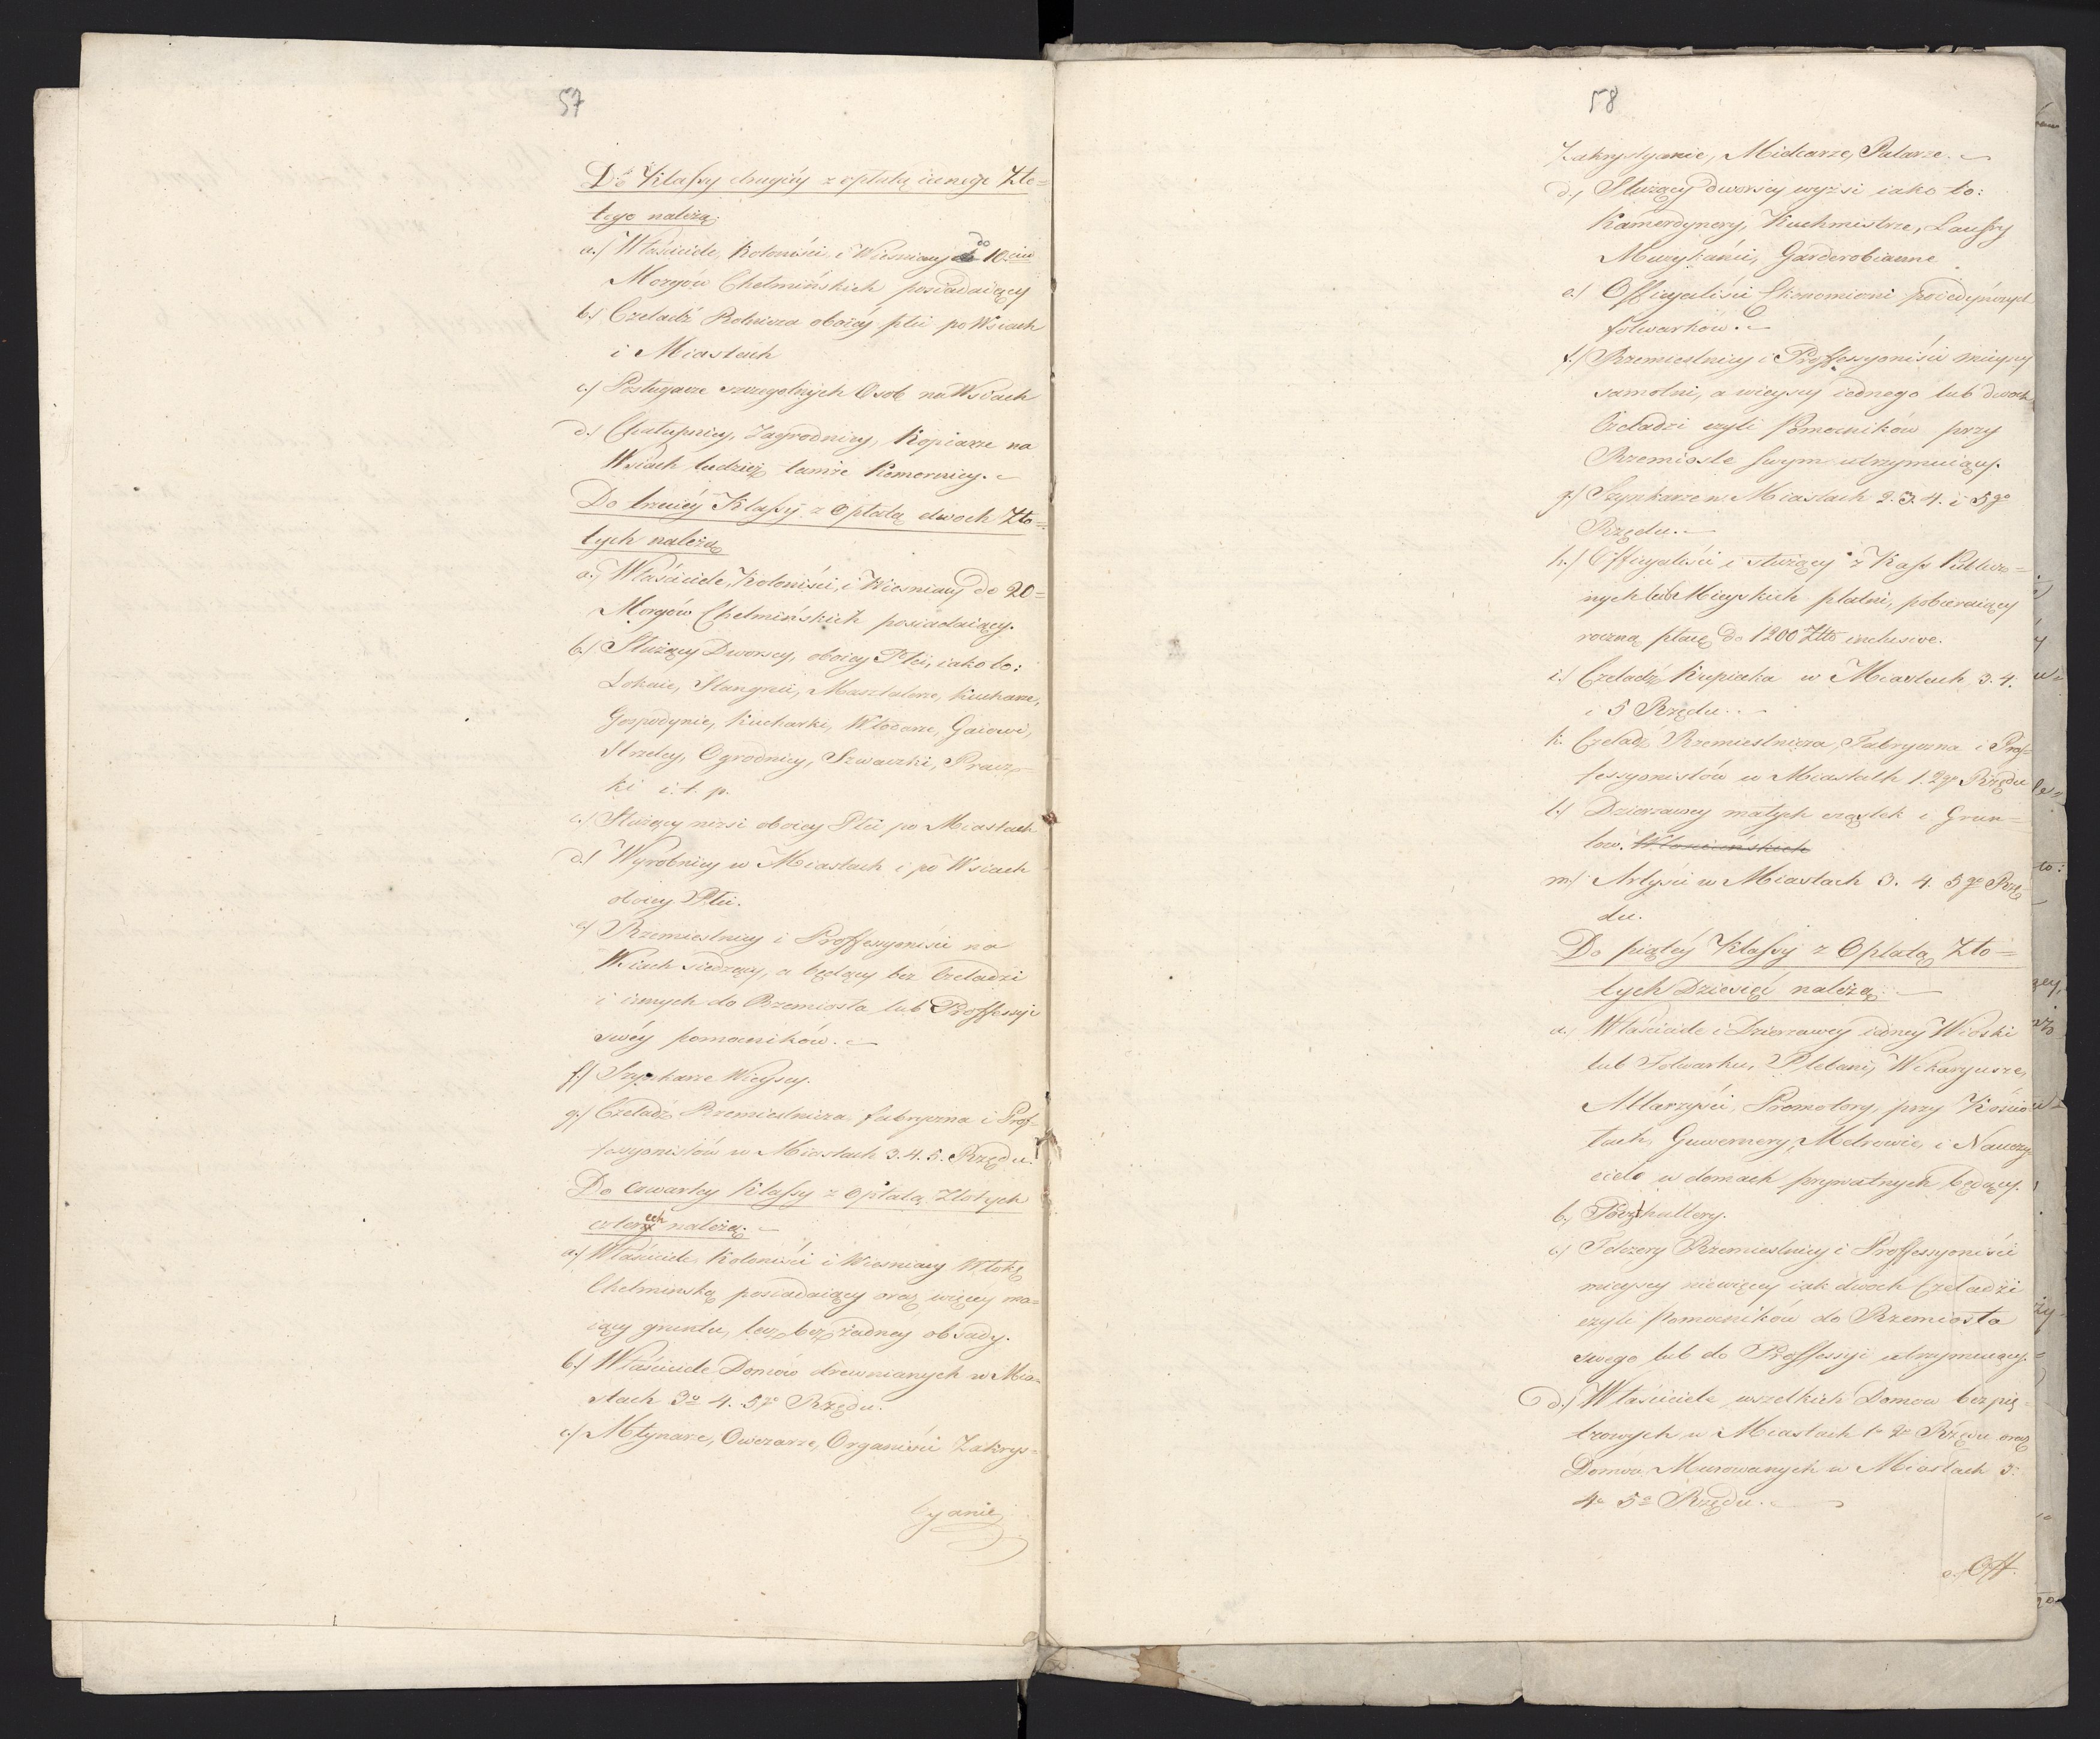 57
Do Klassy drugiéy z opłatą iednego Zło=
tego należą:
a.) Właściciele, Koloniści i Wieśniacy do 10ciu
Morgów Chełmińskich posiadaiący
b.) Czeladź Rolnicza oboiéy płci po Wsiach
i Miastach
c.) Posługacze szczegolnych Osob na Wsiach
d.) Chałupnicy, Zagrodnicy, Kopiarze na
Wsiach tudzież tamże Komornicy.
Do trzeciéy Klassy z Opłatą dwoch Zło=
tych należą
a.) Właściciele, Koloniści, i Wiesniacy do 20=
Morgów Chełmińskich posiadaiący.
b.) Służący Dworscy, oboiey Płci, iako to:
Lokaie, Stangreci, Masztalerze, Kucharze,
Gospodynie, Kucharki, Włodarze, Gaiowi,
Strzelcy, Ogrodnicy, Szwaczki, Pracz=
ki i. t. p.
c.) Służący niżsi oboiey Płci po Miastach
d.) Wyrobnicy w Miastach i po Wsiach
oboiey Płci.
e.) Rzemieslnicy i Proffessyoniści na
Wsiach siedzący, a będący bez Czeladzi
i innych do Rzemiosła lub Proffessyi
swéy pomocników.
f.) Szynkarze Wieyscy.
g.) Czeladź Rzemieslnicza, fabryczna i Prof=
fessyonistów w Miastach 3. 4. 5. Rzędu.
Do Czwartey Klassy z Opłatą Złotych
czterech należą.
a.) Właściciele Koloniści i Wiesniacy Włokę
Chełminską posiadaiący oraz więcey ma=
iący gruntu, lecz bez żadnéy obsady.
b.) Właściciele Domów drewnianych w Mia=
stach 3o 4. 5go Rzędu.
c.) Młynarze, Owczarze, Organiści Zakrys=
tyanie,
58
Zakrystyanie, Mielcarze, Palarze.
d.) Służący dworscy wyżsi iako to:
Kamerdynery, Kuchmistrze, Laufry
Muzykanci, Garderobianne
e.) Officyaliści Ekonomiczni poiedyńczych
folwarków.
f.) Rzemieslnicy i Proffessyoniści mieyscy
samotni, a wieyscy iednego lub dwoch
Czeladzi czyli Pomocników przy
Rzemiosle swym utrzymuiący.
g.) Szynkarze w Miastach 2. 3. 4. i 5go
Rzędu.
h.) Officyaliści i służący z Kass Publicz=
nych lub Mieyskich płatni, pobieraiący
roczną płacę do 1200 Złto inclusive.
i.) Czeladź Kupiecka w Miastach 3. 4.
i 5 Rzędu.
k. Czeladź Rzemieslnicza, Fabryczna i Prof=
fessyonistów w Miastach 1. 2go Rzędu
l.) Dzierzawcy małych cząstek i Grun=
tów. Włościańskich
m.) Artyści w Miastach 3. 4. 5go Rzę
du.
Do piątéy Klassy z Opłatą Zło=
tych Dziesięć należą:
a.) Właściciele i Dzierzawcy iedney Wioski
lub Folwarku, Plebani, Wikaryusze,
Altarzyści, Promotory, przy Kościo=
łach, Guwernery, Metrowie, i Nauczy
ciele w domach prywatnych będący.
b.) Buchaltery.
c.) Felczery Rzemieslnicy i Proffessyoniści
mieyscy niewięcey iak dwoch Czeladzi
czyli Pomocników do Rzemiosła
swego lub do Proffessyi utrzymuiący.
d.) Właściciele wszelkich Domow bezpię=
trowych w Miastach 1o 2o Rzędu oraz
Domow Murowanych w Miastach 3.
4o 5o Rzędu.
e.) Off.